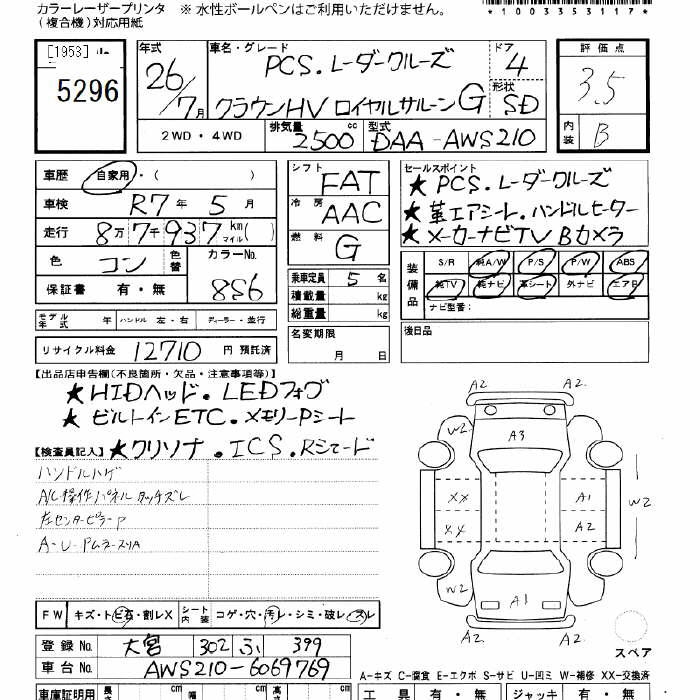 カラーレーザープリンタ ※ 水性ボールペンはご利用いただけません。
（複合機）対応用紙
*1003353117*
[1953]
5296
年式 26/7月
車名・グレード PCS.レーダークルーズ
クラウンHV ロイヤルサルーンG
ドア 4
形状 SD
評価点 3.5
内装 B
2WD・4WD 排気量 2500 cc 型式 DAA-AWS210
車歴 自家用・( )
車検 R7年 5月
走行 8万7千937 km マイル( )
色 コン 色替 カラーNo. 8S6
保証書 有・無
シフト FAT
冷房 AAC
燃料 G
乗車定員 5 名
積載量 kg
総重量 kg
セールスポイント
★ PCS.レーダークルーズ
★革エアシート.ハンドルヒーター
★メーカーナビTV Bカメラ
装備品 S/R 純A/W P/S P/W ABS
純TV 純ナビ 革シート 外ナビ エアB
ナビ型番：
モデル年式 年 ハンドル 左・右 ディーラー・並行
名変期限 月 日
後日品
リサイクル料金 12710 円 預託済
【出品店申告欄(不良箇所・欠品・注意事項等)】
★HIDヘッド.LEDフォグ
★ビルトインETC.メモリーPシート
【検査員記入】★クリソナ.ICS.Rシェード
ハンドルハゲ
A/C操作パネルタッチズレ
左センターピラーP
A2 A2
W2
A3
XX A1
XX A2
W2
W2
A1
A2 A2
スペア
FW キズ・トビ石・割レX シート内装 コゲ・穴・汚レ・シミ・破レ・スレ
登録No. 大宮 302 ふ 399
車台No. AWS210-6069769
A-キズ C-腐食 E-エクボ S-サビ U-凹ミ W-補修 XX-交換済
車庫証明用 長さ cm 幅 cm 高さ cm 工具 有・無 ジャッキ 有・無